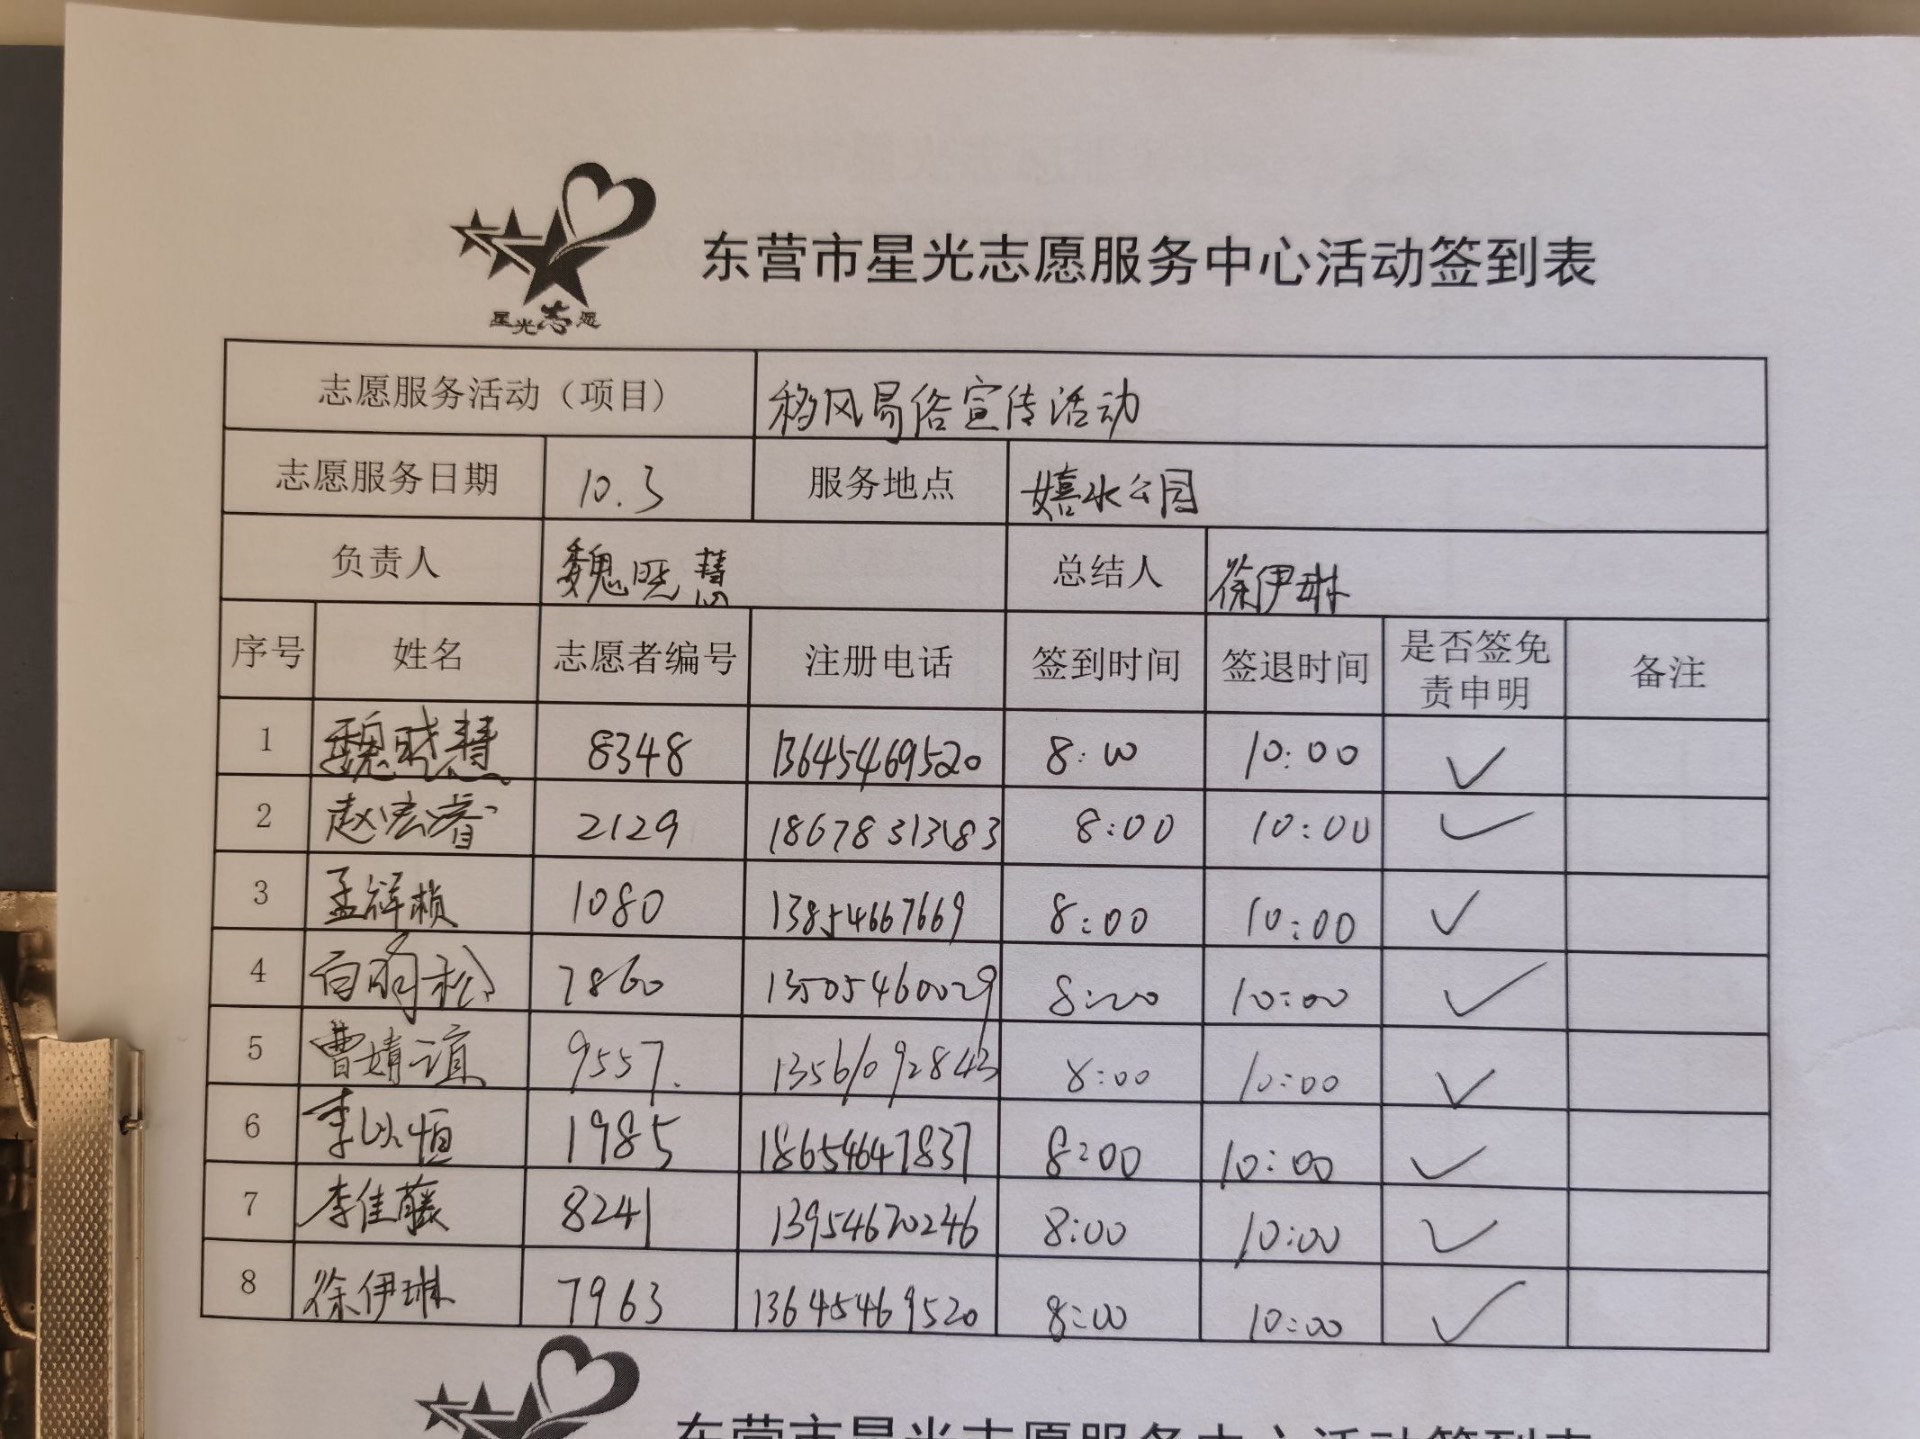 星光志愿
东营市星光志愿服务中心活动签到表
志愿服务活动（项目） 移风易俗宣传活动
志愿服务日期 10.3 服务地点 嬉水公园
负责人 魏晓慧 总结人 徐伊琳
序号 姓名 志愿者编号 注册电话 签到时间 签退时间 是否签免责申明 备注
1 魏晓慧 8348 13645469520 8:00 10:00 ✓
2 赵宏睿 2129 18678313183 8:00 10:00 ✓
3 孟祥桢 1080 13854667669 8:00 10:00 ✓
4 白雨松 7860 13505460029 8:00 10:00 ✓
5 曹婧谊 9557. 13561092843 8:00 10:00 ✓
6 李以恒 1985 18654647837 8:00 10:00 ✓
7 李佳藤 8241 13954670246 8:00 10:00 ✓
8 徐伊琳 7963 13645469520 8:00 10:00 ✓
东营市星光志愿服务中心活动签到表